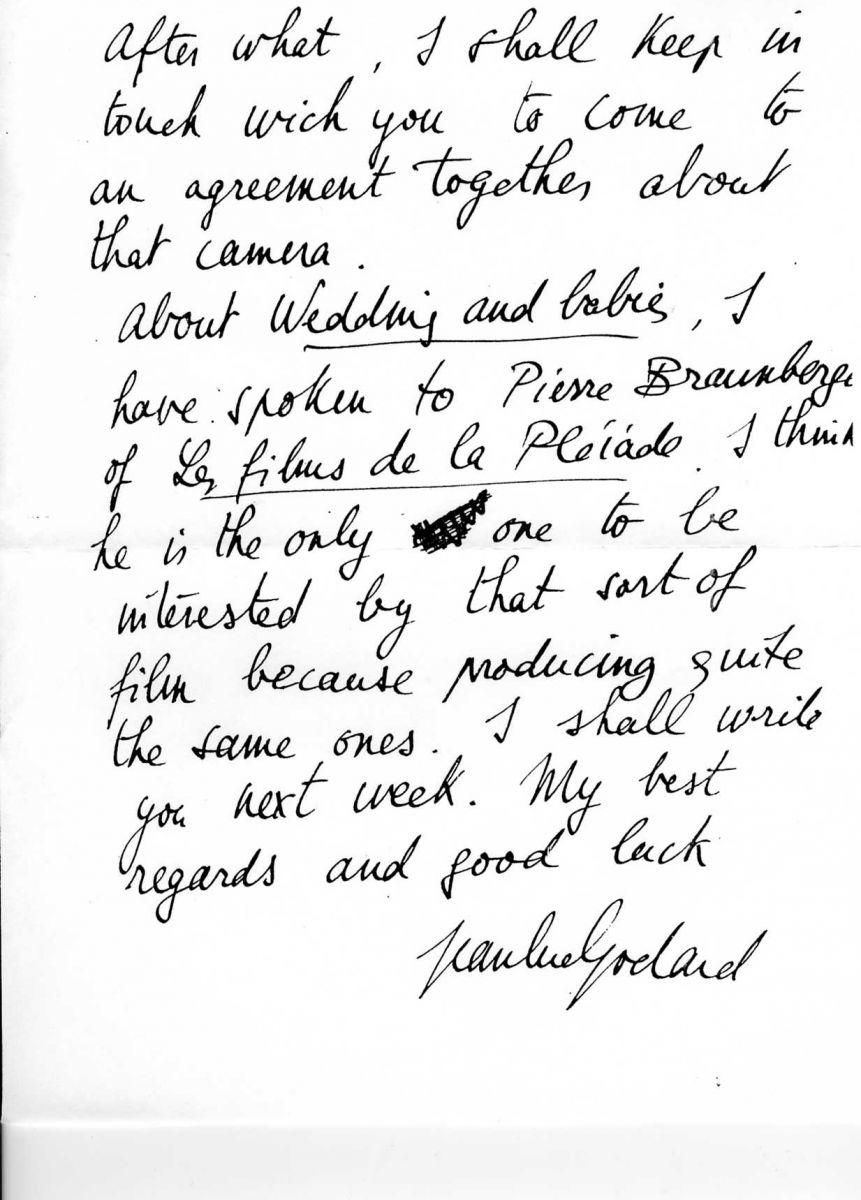 After what, I shall keep in
touch wich you to come to
an agreement together about
that camera.
About Wedding and babies, I
have spoken to Pierre Braunberge
of Les films de la Pléiade. I think
he is the only one to be
interested by that sort of
film because producing quite
the same ones. I shall write
you next week. My best
regards and good luck
Jean Luc Godard